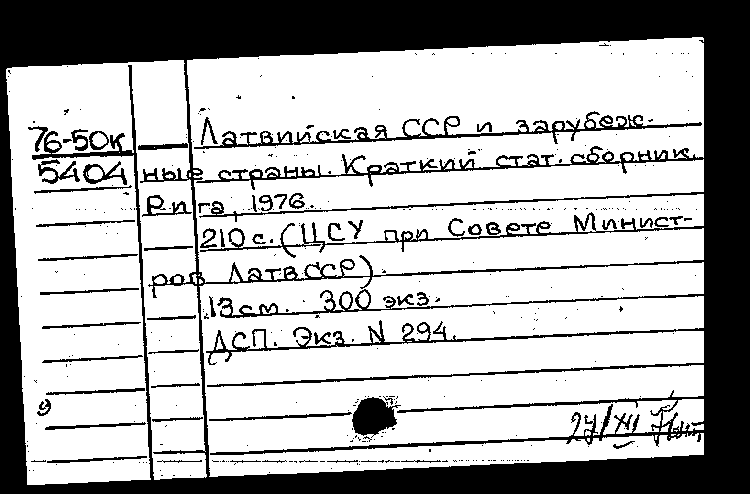 76-50к
5404
Латвийская ССР и зарубеж-
ные страны. Краткий стат. сборник.
Рига, 1976.
210 с. (ЦСУ при Совете Минист-
ров ЛатвССР).
13 см. 300 экз.
ДСП. Экз. N 294.
9
27/XII